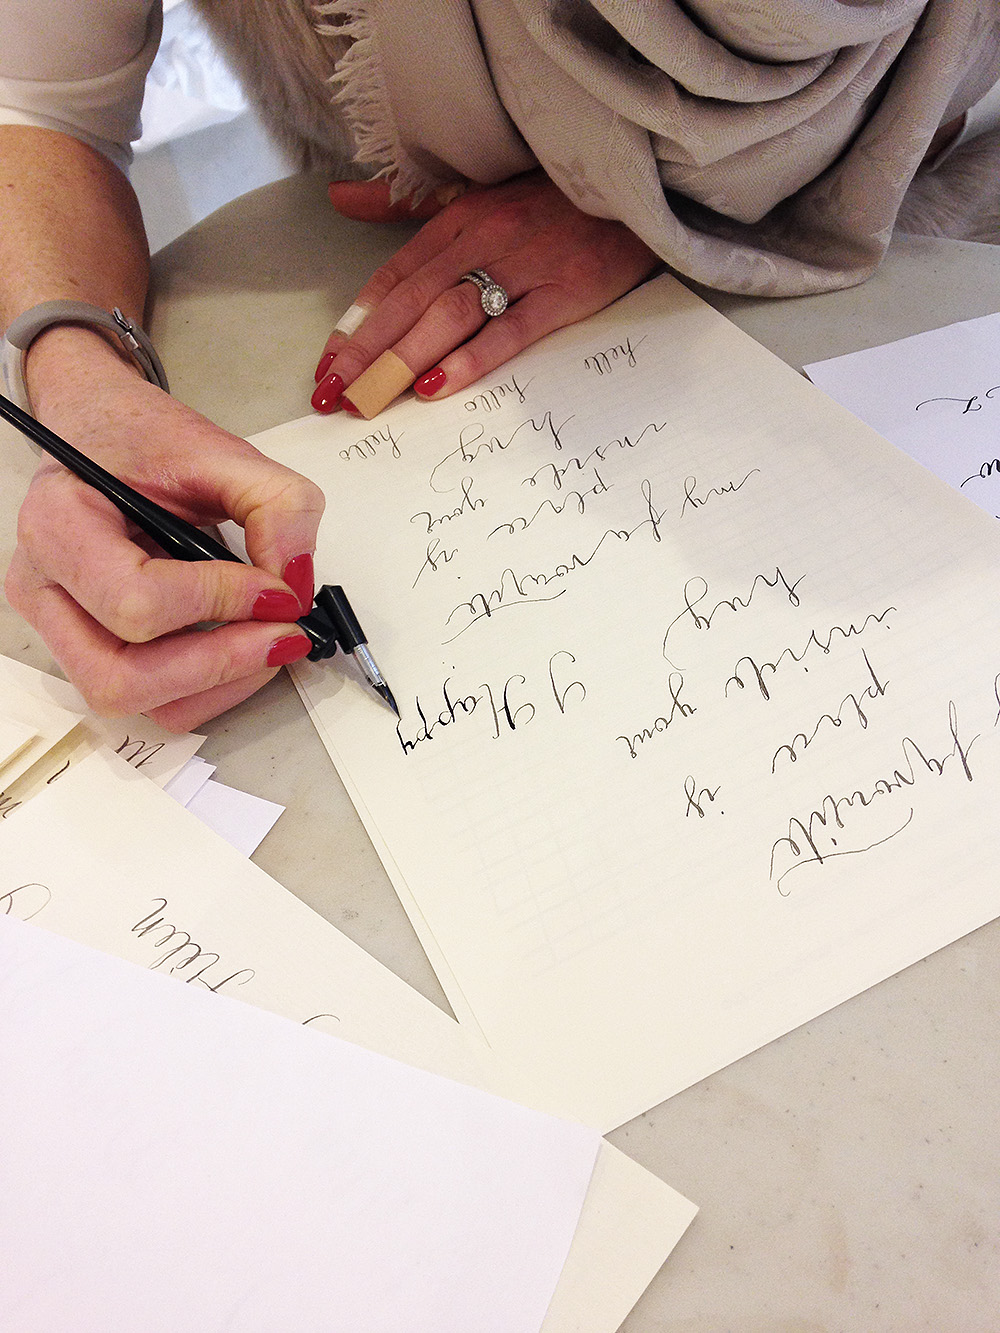 favourite
place is
inside your
hug
Happy
my favourite
place is
inside your
hug
hello hello hello
Helen